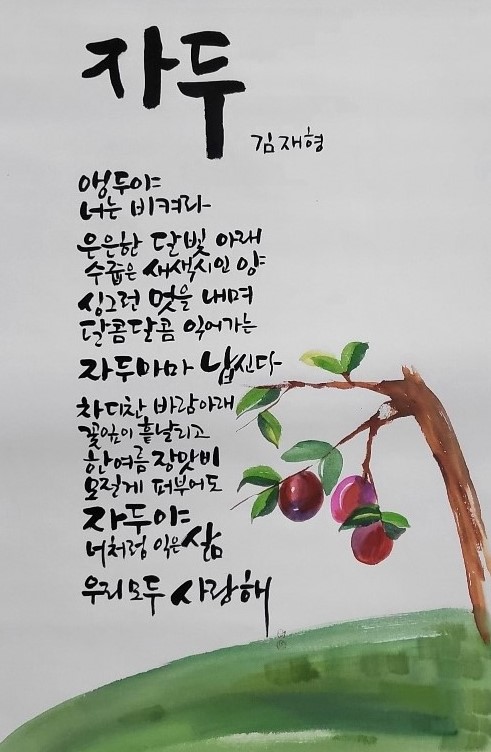 자두
김재형
앵두야
너는 비켜라
은은한 달빛 아래
수줍은 새색시인 양
싱그런 멋을 내며
달콤달콤 익어가는
자두마마 납신다
차디찬 바람아래
꽃잎이 흩날리고
한여름 장맛비
모질게 퍼부어도
자두야
너처럼 익은 삶
우리 모두 사랑해